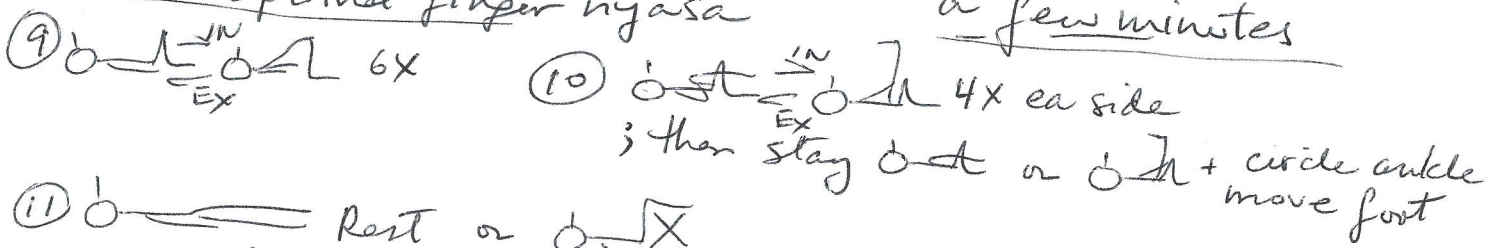 finger nyasa a few minutes
⑨ IN EX 6X
⑩ IN EX 4X ea side
; then stay or + circle ankle
move foot
⑪ Rest or